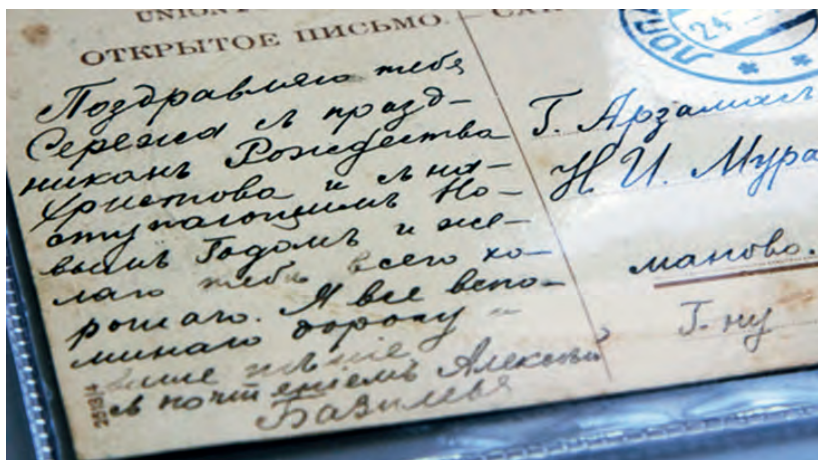 UNION
ОТКРЫТОЕ ПИСЬМО. —
Поздравляю тебя
Сережа съ празд-
никомъ Рождества
Христова и съ на-
ступающимъ Но-
вымъ Годомъ и же-
лаю тебѣ всего хо-
рошаго. Я все вспо-
минаю дорогу -
пѣніе
съ почтеніемъ Алексѣй
Базилевъ
24
Г. Арзамасъ
Н И. Мура
маново.
Г-ну